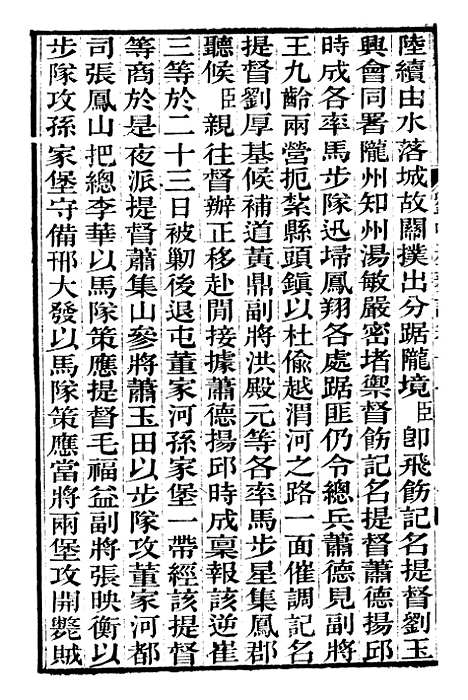 陸續由水落城故關撲出分踞隴境臣卽飛飭記名提督劉玉
興會同署隴州知州湯敏嚴密堵禦督飭記名提督蕭德揚邱
時成各率馬步隊迅埽鳳翔各處踞匪仍令總兵蕭德見副將
王九齡兩營扼紮縣頭鎮以杜偷越渭河之路一面催調記名
提督劉厚基候補道黃鼎副將洪殿元等各率馬步星集鳳郡
聽候臣親往督辦正移赴閒接據蕭德揚邱時成稟報該逆崔
三等於二十三日被勦後退屯董家河孫家堡一帶經該提督
等商於是夜派提督蕭集山參將蕭玉田以步隊攻董家河都
司張鳳山把總李華以馬隊策應提督毛福益副將張映衡以
步隊攻孫家堡守備邢大發以馬隊策應當將兩堡攻開斃賊